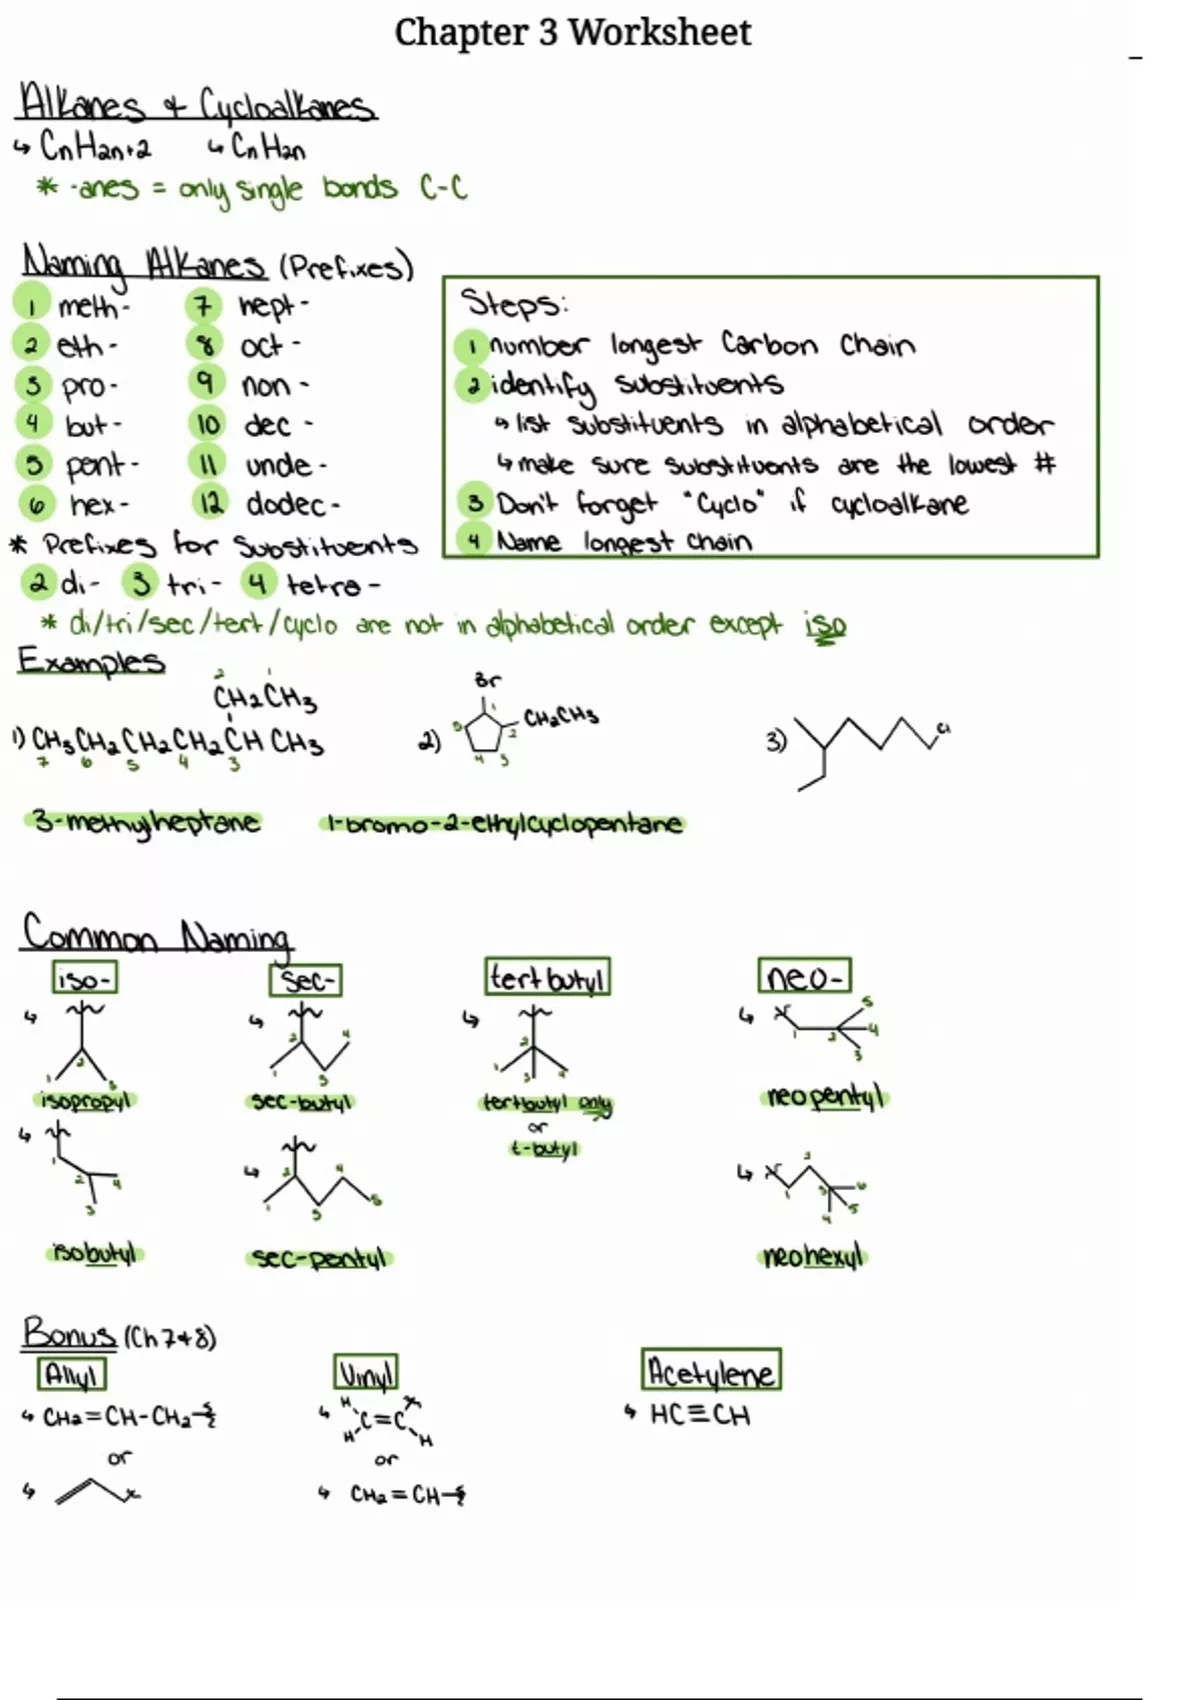 Chapter 3 Worksheet
Alkanes & Cycloalkanes
↳ CnH2n+2 ↳ CnH2n
* -anes = only single bonds C-C
Naming Alkanes (Prefixes)
1 meth- 7 hept-
2 eth- 8 oct-
3 pro- 9 non-
4 but- 10 dec-
5 pent- 11 unde-
6 hex- 12 dodec-
* Prefixes for Substituents
2 di- 3 tri- 4 tetra-
Steps:
1 number longest Carbon Chain
2 identify substituents
↳ list substituents in alphabetical order
↳ make sure substituents are the lowest #
3 Don't forget "Cyclo" if cycloalkane
4 Name longest chain
* di/tri/sec/tert/cyclo are not in alphabetical order except iso
Examples
2 1
CH2CH3
1) CH3CH2CH2CH2CHCH3
7 6 5 4 3
2) Br
1 2 3 4 5
CH2CH3
3) Cl
3-methylheptane 1-bromo-2-ethylcyclopentane
Common Naming
iso- sec- tertbutyl neo-
1 2 3
1 2 3 4
1 2 3 4
1 2 3 4 5
isopropyl sec-butyl tertbutyl only neopentyl
or
t-butyl
1 2 3 4
1 2 3 4 5
1 2 3 4 5 6
isobutyl sec-pentyl neohexyl
Bonus (Ch 7+8)
Allyl Vinyl Acetylene
↳ CH2=CH-CH2 ↳ H H C=C H ↳ HC≡CH
or or
↳ CH2=CH